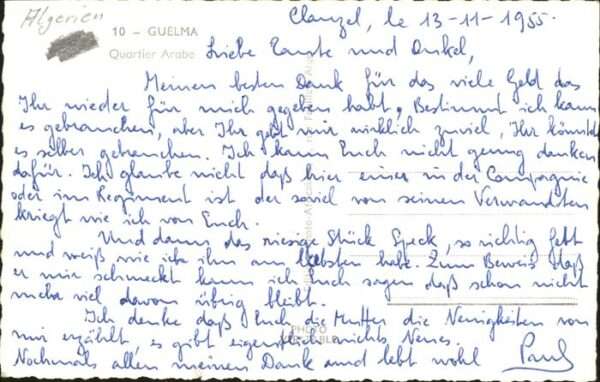 Algerien
10 - GUELMA
Quartier Arabe
Clauzel, le 13-11-1955.
Liebe Tante und Onkel,
Meinen besten Dank für das viele Geld das
Ihr wieder für mich gegeben habt. Bestimmt ich kann
es gebrauchen, aber Ihr gebt mir wirklich zuviel, Ihr könntet
es selber gebrauchen. Ich kann Euch nicht genug danken
dafür. Ich glaube nicht daß hier einer in der Compagnie
oder im Regiment ist der soviel von seinen Verwandten
kriegt wie ich von Euch.
Und dann das riesige Stück Speck, so richtig fett
und weiß wie ich ihn am liebsten habe. Zum Beweis daß
er mir schmeckt kann ich Euch sagen daß schon nicht
mehr viel davon übrig bleibt.
Ich denke daß Euch die Mutter die Neuigkeiten von
mir erzählt, es gibt eigentlich nichts Neues.
Nochmals allen meinen Dank und lebt wohl Paul